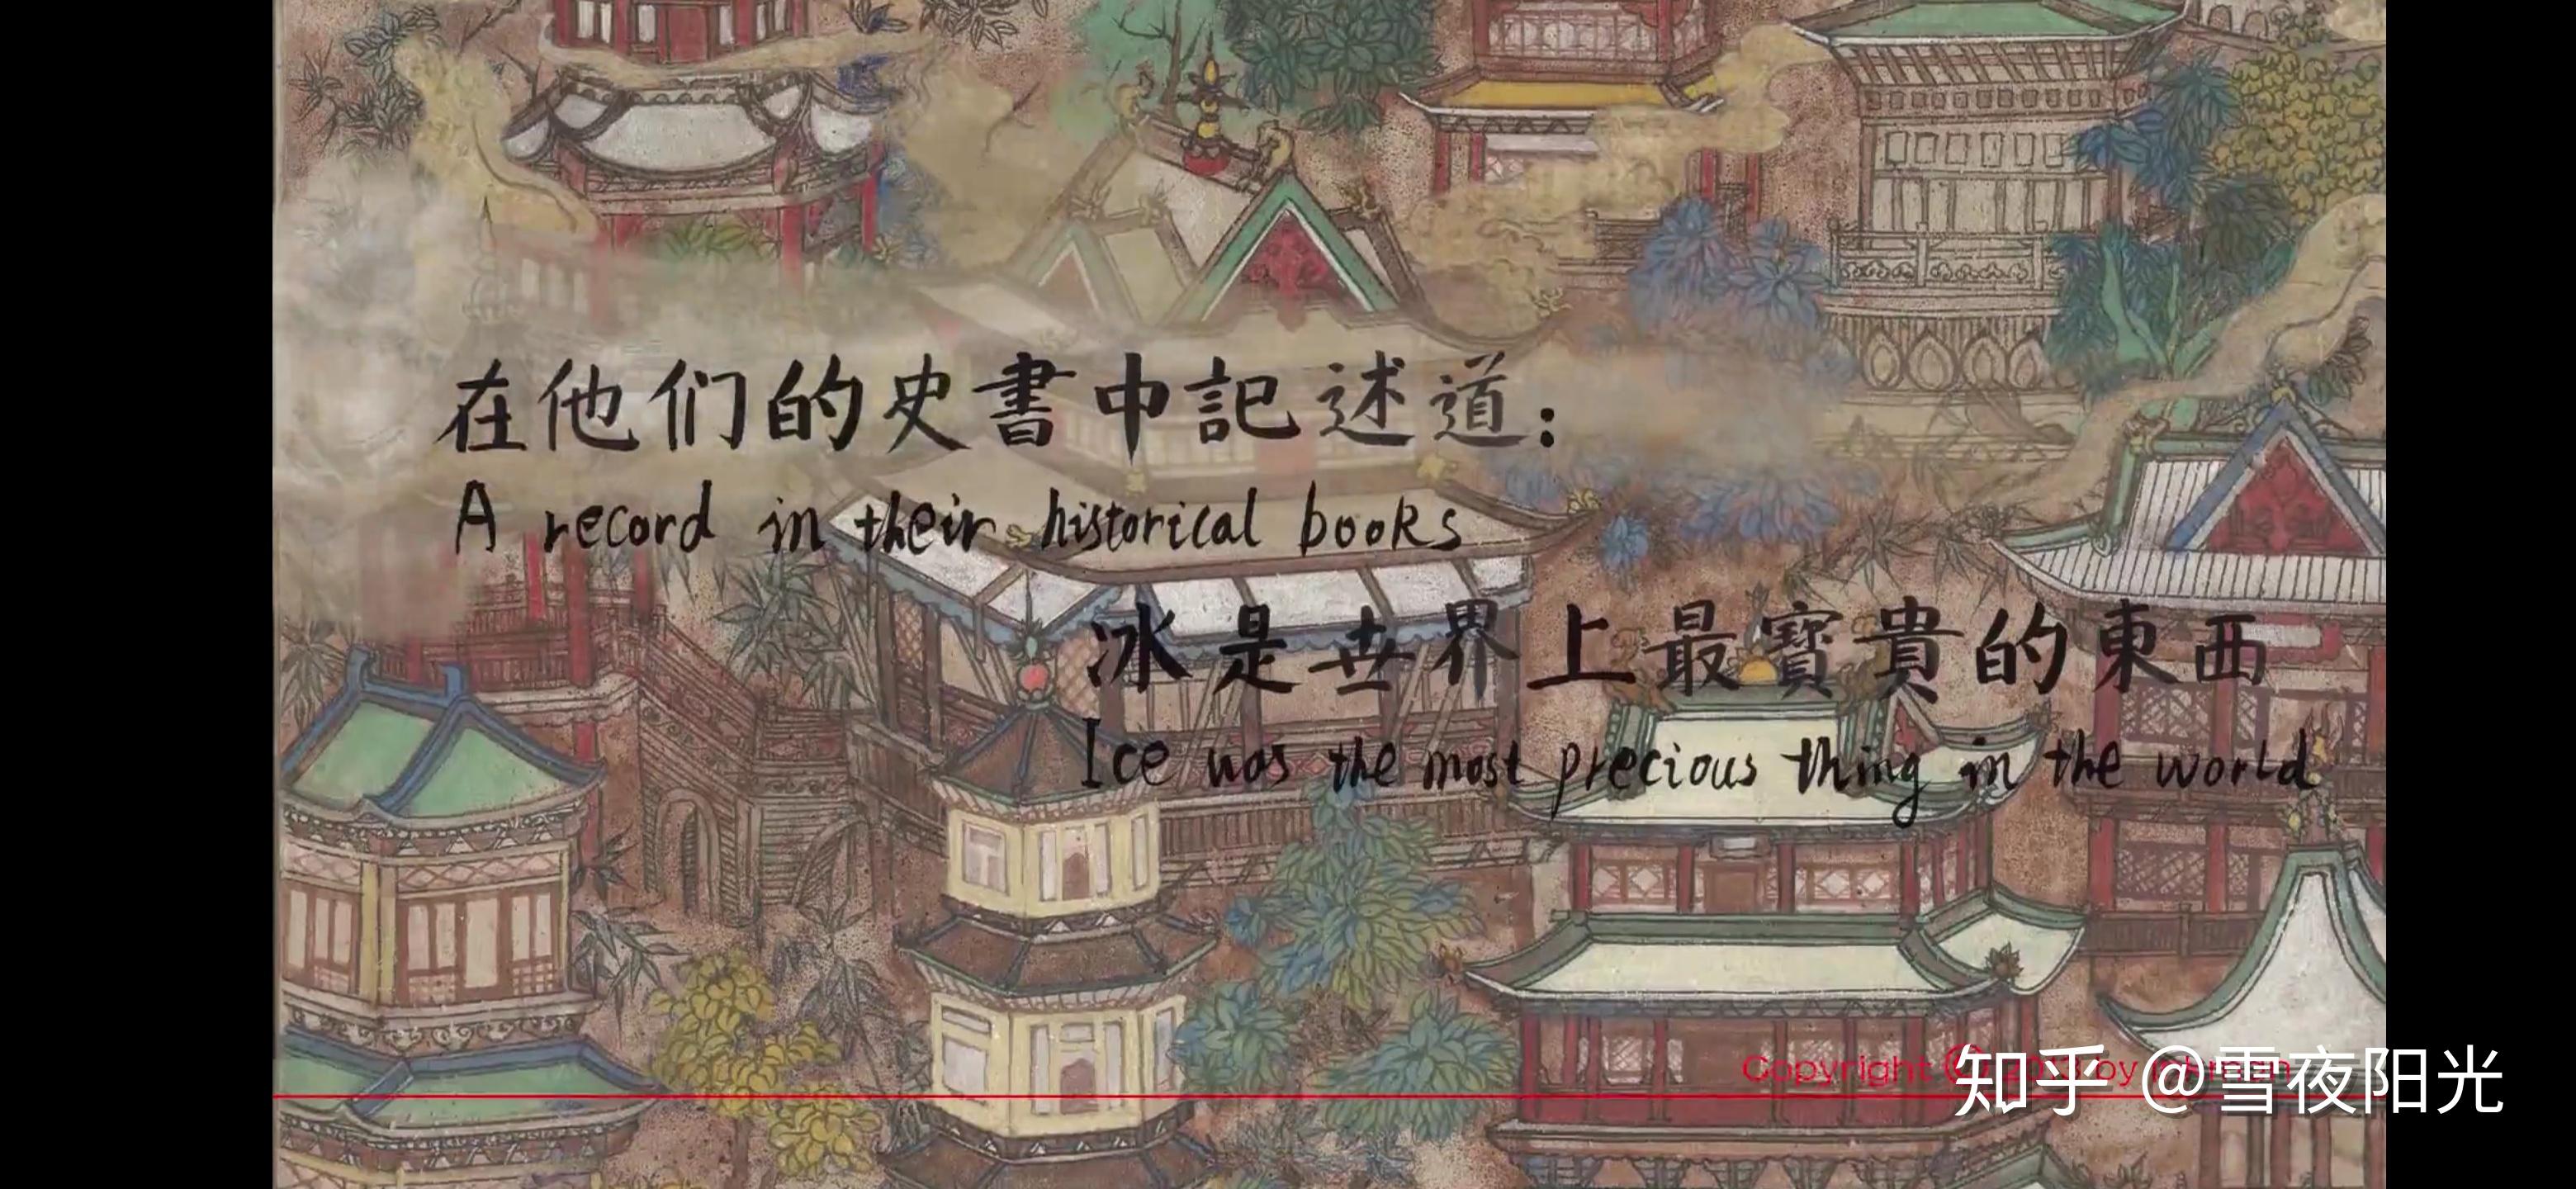 在他们的史書中記述道：
A record in their historical books
冰是世界上最寶貴的東西
Ice was the most precious thing in the world
Copyright © 2013 by
知乎 @雪夜阳光